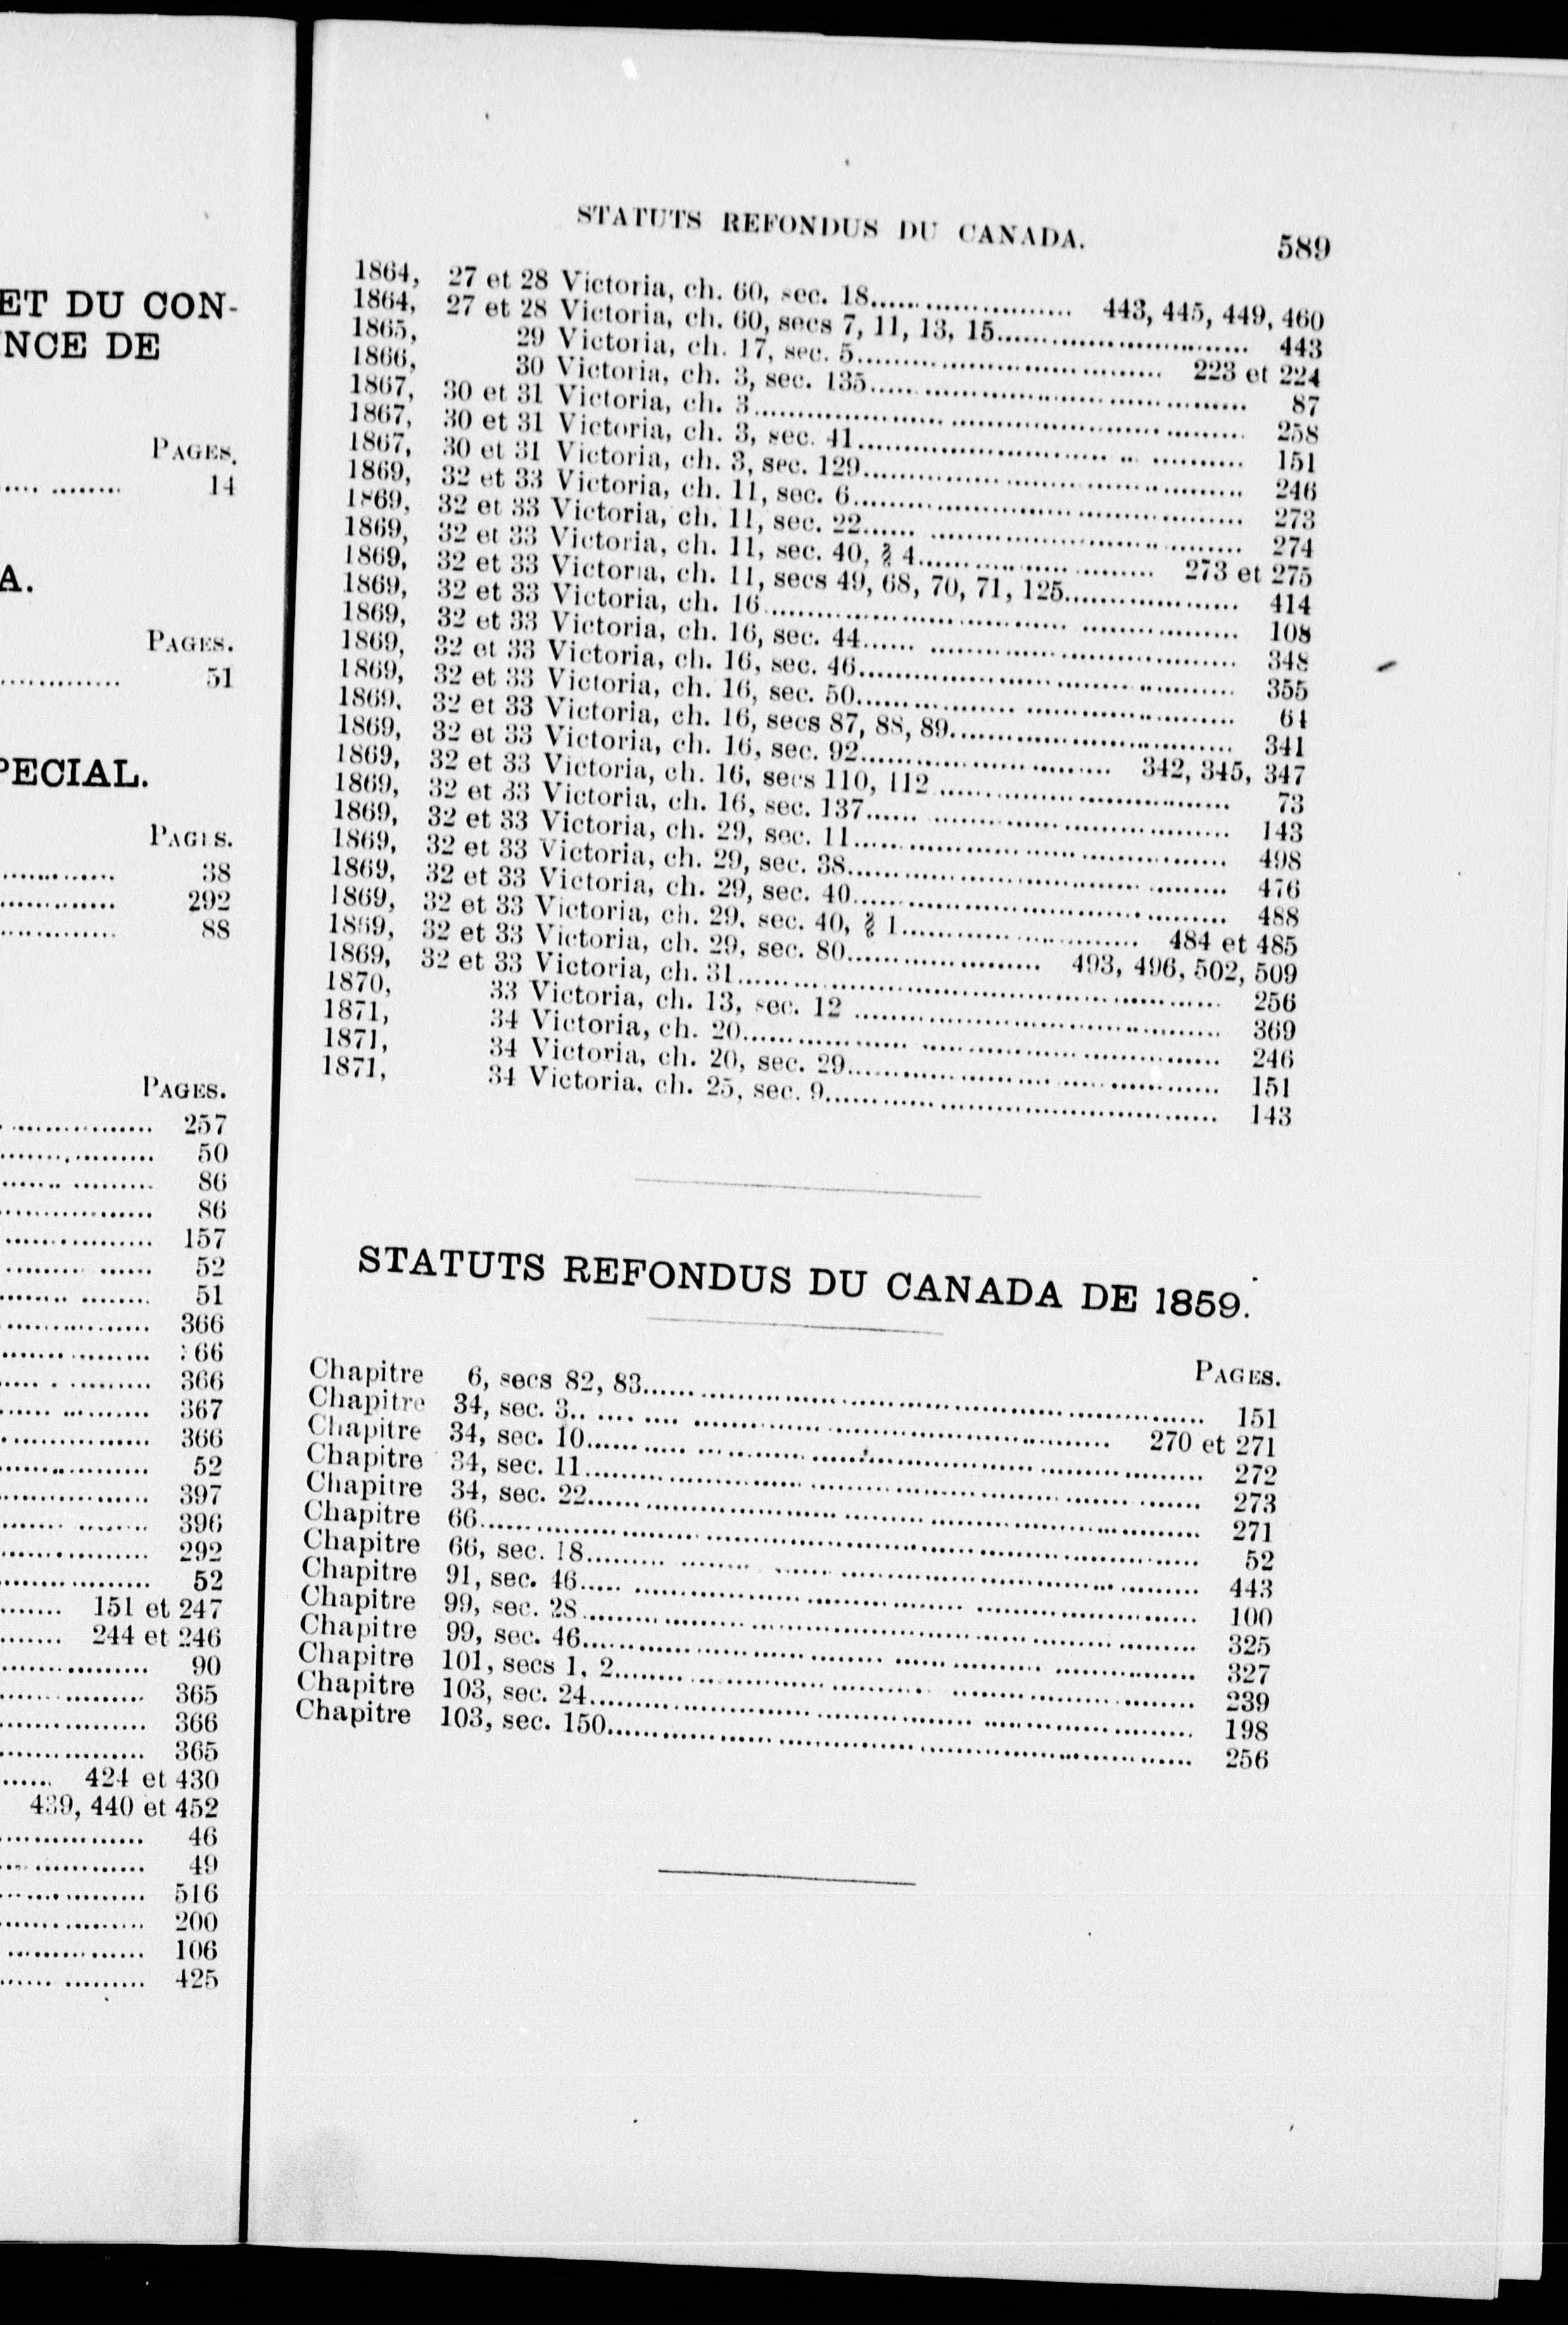 ET DU CON-
INCE DE
PAGES.
14
A.
PAGES.
51
PECIAL.
PAGES.
38
292
88
PAGES.
257
50
86
86
157
52
51
366
66
366
367
366
52
397
396
292
52
151 et 247
244 et 246
90
365
366
365
424 et 430
439, 440 et 452
46
49
516
200
106
425
STATUTS REFONDUS DU CANADA. 589
1864, 27 et 28 Victoria, ch. 60, sec. 18........................ 443, 445, 449, 460
1864, 27 et 28 Victoria, ch. 60, secs 7, 11, 13, 15........................ 443
1865, 29 Victoria, ch. 17, sec. 5........................ 223 et 224
1866, 30 Victoria, ch. 3, sec. 135........................ 87
1867, 30 et 31 Victoria, ch. 3........................ 258
1867, 30 et 31 Victoria, ch. 3, sec. 41........................ 151
1867, 30 et 31 Victoria, ch. 3, sec. 129........................ 246
1869, 32 et 33 Victoria, ch. 11, sec. 6........................ 273
1869, 32 et 33 Victoria, ch. 11, sec. 22........................ 274
1869, 32 et 33 Victoria, ch. 11, sec. 40, § 4........................ 273 et 275
1869, 32 et 33 Victoria, ch. 11, secs 49, 68, 70, 71, 125........................ 414
1869, 32 et 33 Victoria, ch. 16........................ 108
1869, 32 et 33 Victoria, ch. 16, sec. 44........................ 348
1869, 32 et 33 Victoria, ch. 16, sec. 46........................ 355
1869, 32 et 33 Victoria, ch. 16, sec. 50........................ 64
1869, 32 et 33 Victoria, ch. 16, secs 87, 88, 89........................ 341
1869, 32 et 33 Victoria, ch. 16, sec. 92........................ 342, 345, 347
1869, 32 et 33 Victoria, ch. 16, secs 110, 112........................ 73
1869, 32 et 33 Victoria, ch. 16, sec. 137........................ 143
1869, 32 et 33 Victoria, ch. 29, sec. 11........................ 498
1869, 32 et 33 Victoria, ch. 29, sec. 38........................ 476
1869, 32 et 33 Victoria, ch. 29, sec. 40........................ 488
1869, 32 et 33 Victoria, ch. 29, sec. 40, § 1........................ 484 et 485
1869, 32 et 33 Victoria, ch. 29, sec. 80........................ 493, 496, 502, 509
1869, 32 et 33 Victoria, ch. 31........................ 256
1870, 33 Victoria, ch. 13, sec. 12........................ 369
1871, 34 Victoria, ch. 20........................ 246
1871, 34 Victoria, ch. 20, sec. 29........................ 151
1871, 34 Victoria, ch. 25, sec. 9........................ 143
STATUTS REFONDUS DU CANADA DE 1859.
PAGES.
Chapitre 6, secs 82, 83........................ 151
Chapitre 34, sec. 3........................ 270 et 271
Chapitre 34, sec. 10........................ 272
Chapitre 34, sec. 11........................ 273
Chapitre 34, sec. 22........................ 271
Chapitre 66........................ 52
Chapitre 66, sec. 18........................ 443
Chapitre 91, sec. 46........................ 100
Chapitre 99, sec. 28........................ 325
Chapitre 99, sec. 46........................ 327
Chapitre 101, secs 1, 2........................ 239
Chapitre 103, sec. 24........................ 198
Chapitre 103, sec. 150........................ 256